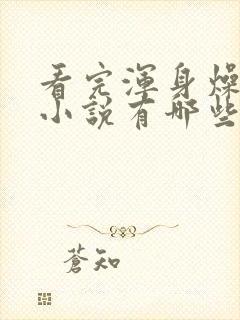 看完渾身燥
小說有哪些
蒼知